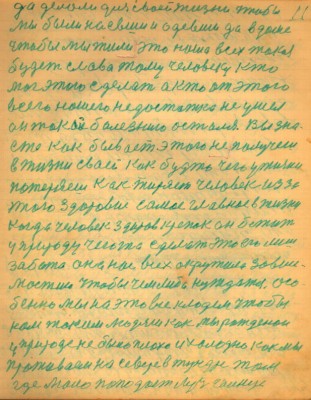 да делали для своей жизни чтобы 11
мы были наевшие и одевши да в доме
чтобы мы жили Это наша всех такая
будет слава тому человеку кто
мог этого сделать а кто от этого
всего нашего недостатка не ушел
он такой болезнию остался. Вы зна-
ете как бывает этого не получаем
в жизни своей как будто чего у жизни
потеряем Как теряет человек из за
этого здоровие самое главное в жизни
Когда человек здоров крепок он бежит
у природу чего то сделать Это его лиш
забота она нас всех окружила
мостию чтобы чем либо нуждатся, осо
бенно мы на это вне кладем чтобы
нам таким людям как мы рожденои
у природе не было плохо и холодно как мы
проживаем на севере в тундре там
где мало попадает луч солнце